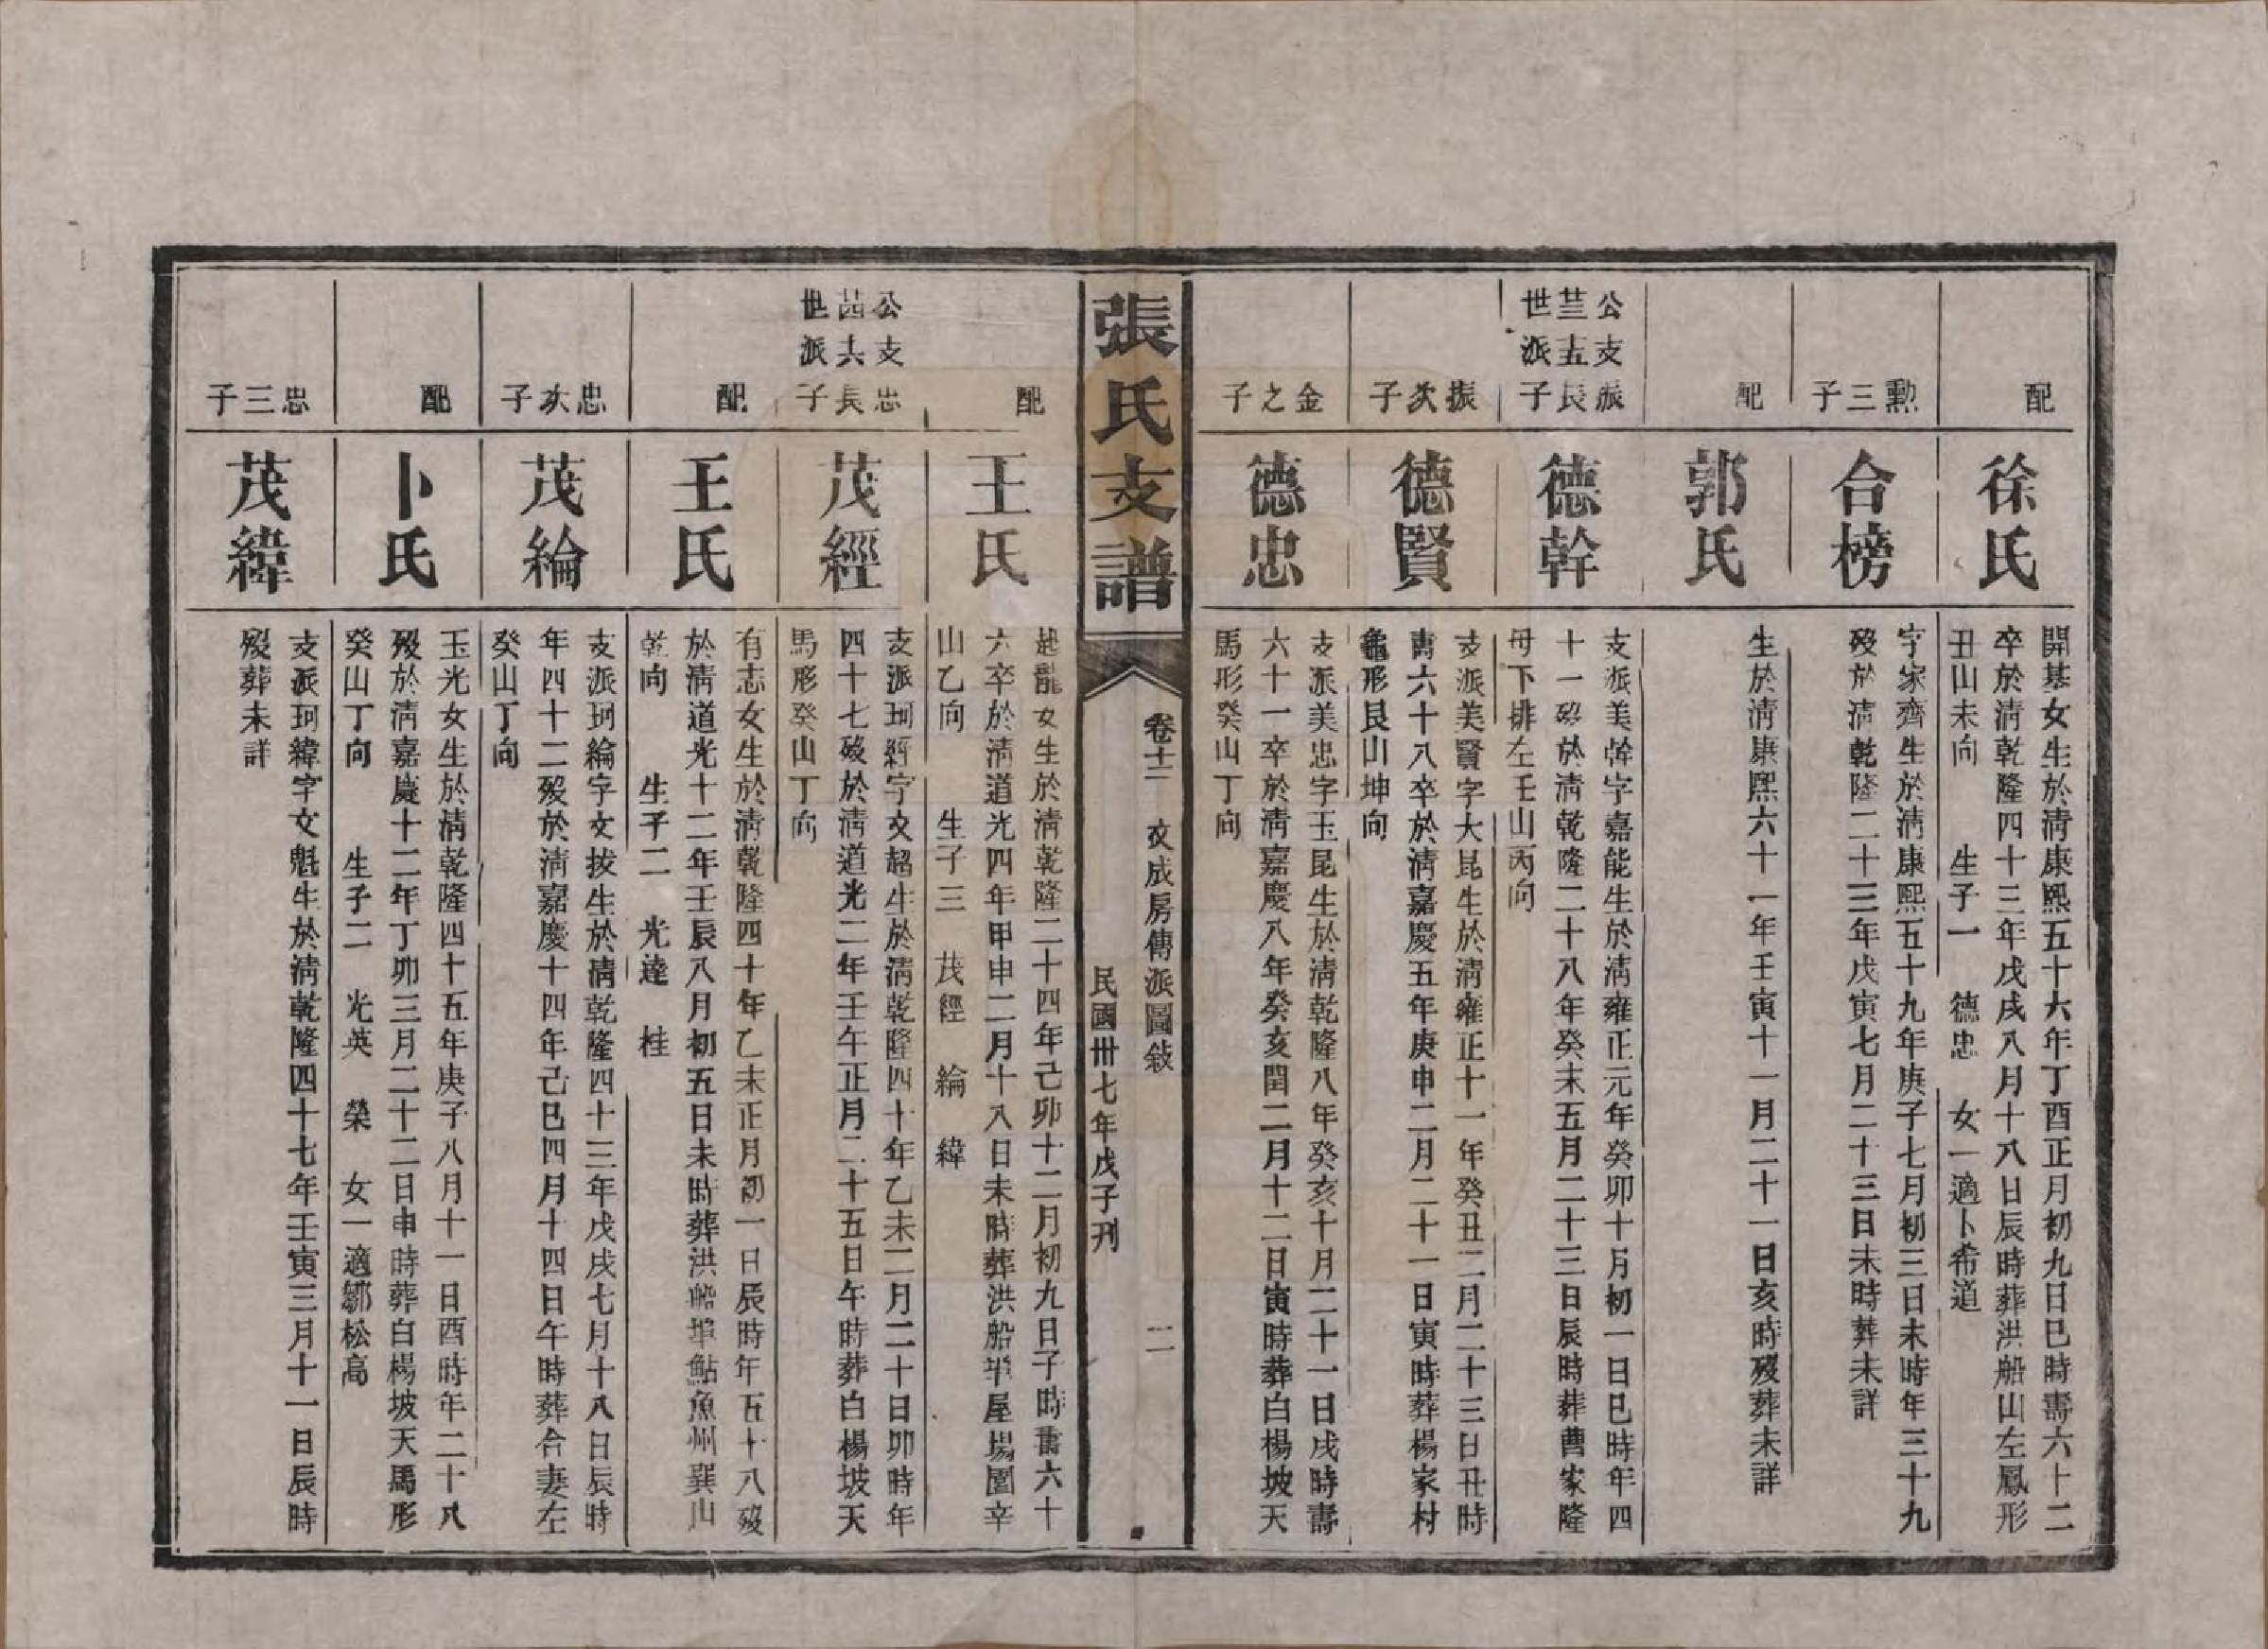 配
徐氏
開基女生於清康熙五十六年丁酉正月初九日巳時壽六十二
卒於清乾隆四十三年戊戌八月十八日辰時葬洪船山左鳳形
丑山未向 生子一 德忠 女一適卜希道
勳三子
合榜
字家齊生於清康熙五十九年庚子七月初三日未時年三十九
歿於清乾隆二十三年戊寅七月二十三日未時葬未詳
配
郭氏
生於清康熙六十一年壬寅十一月二十一日亥時歿葬未詳
公支振
三十五長
世派子
德幹
支派美幹字嘉能生於清雍正元年癸卯十月初一日巳時年四
十一歿於清乾隆二十八年癸未五月二十三日辰時葬曹家隆
母下排左壬山丙向
振次子
德賢
支派美賢字大昆生於清雍正十一年癸丑二月二十三日丑時
壽六十八卒於清嘉慶五年庚申二月二十一日寅時葬楊家村
龜形艮山坤向
金之子
德忠
支派美忠字玉昆生於清乾隆八年癸亥十月二十一日戌時壽
六十一卒於清嘉慶八年癸亥閏二月十二日寅時葬白楊坡天
馬形癸山丁向
張氏支譜
卷十二 文成房傳派圖敍 二
民國卅七年戊子刊
配
王氏
起龍女生於清乾隆二十四年己卯十二月初九日子時壽六十
六卒於清道光四年甲申二月十八日未時葬洪船坪屋場園辛
山乙向 生子三 茂經 綸 緯
公支忠
共長
世派子
茂經
支派珂經字文超生於清乾隆四十年乙未二月二十日卯時年
四十七歿於清道光二年壬午正月二十五日午時葬白楊坡天
馬形癸山丁向
配
王氏
有志女生於清乾隆四十年乙未正月初一日辰時年五十八歿
於清道光十二年壬辰八月初五日未時葬洪船埠鮎魚州巽山
乾向 生子二 光達 桂
忠次子
茂綸
支派珂綸字文拔生於清乾隆四十三年戊戌七月十八日辰時
年四十二歿於清嘉慶十四年己巳四月十四日午時葬合妻左
癸山丁向
配
卜氏
玉光女生於清乾隆四十五年庚子八月十一日酉時年二十八
歿於清嘉慶十二年丁卯三月二十二日申時葬白楊坡天馬形
癸山丁向 生子二 光英 榮 女一適鄒松高
忠三子
茂緯
支派珂緯字文魁生於清乾隆四十七年壬寅三月十一日辰時
歿葬未詳